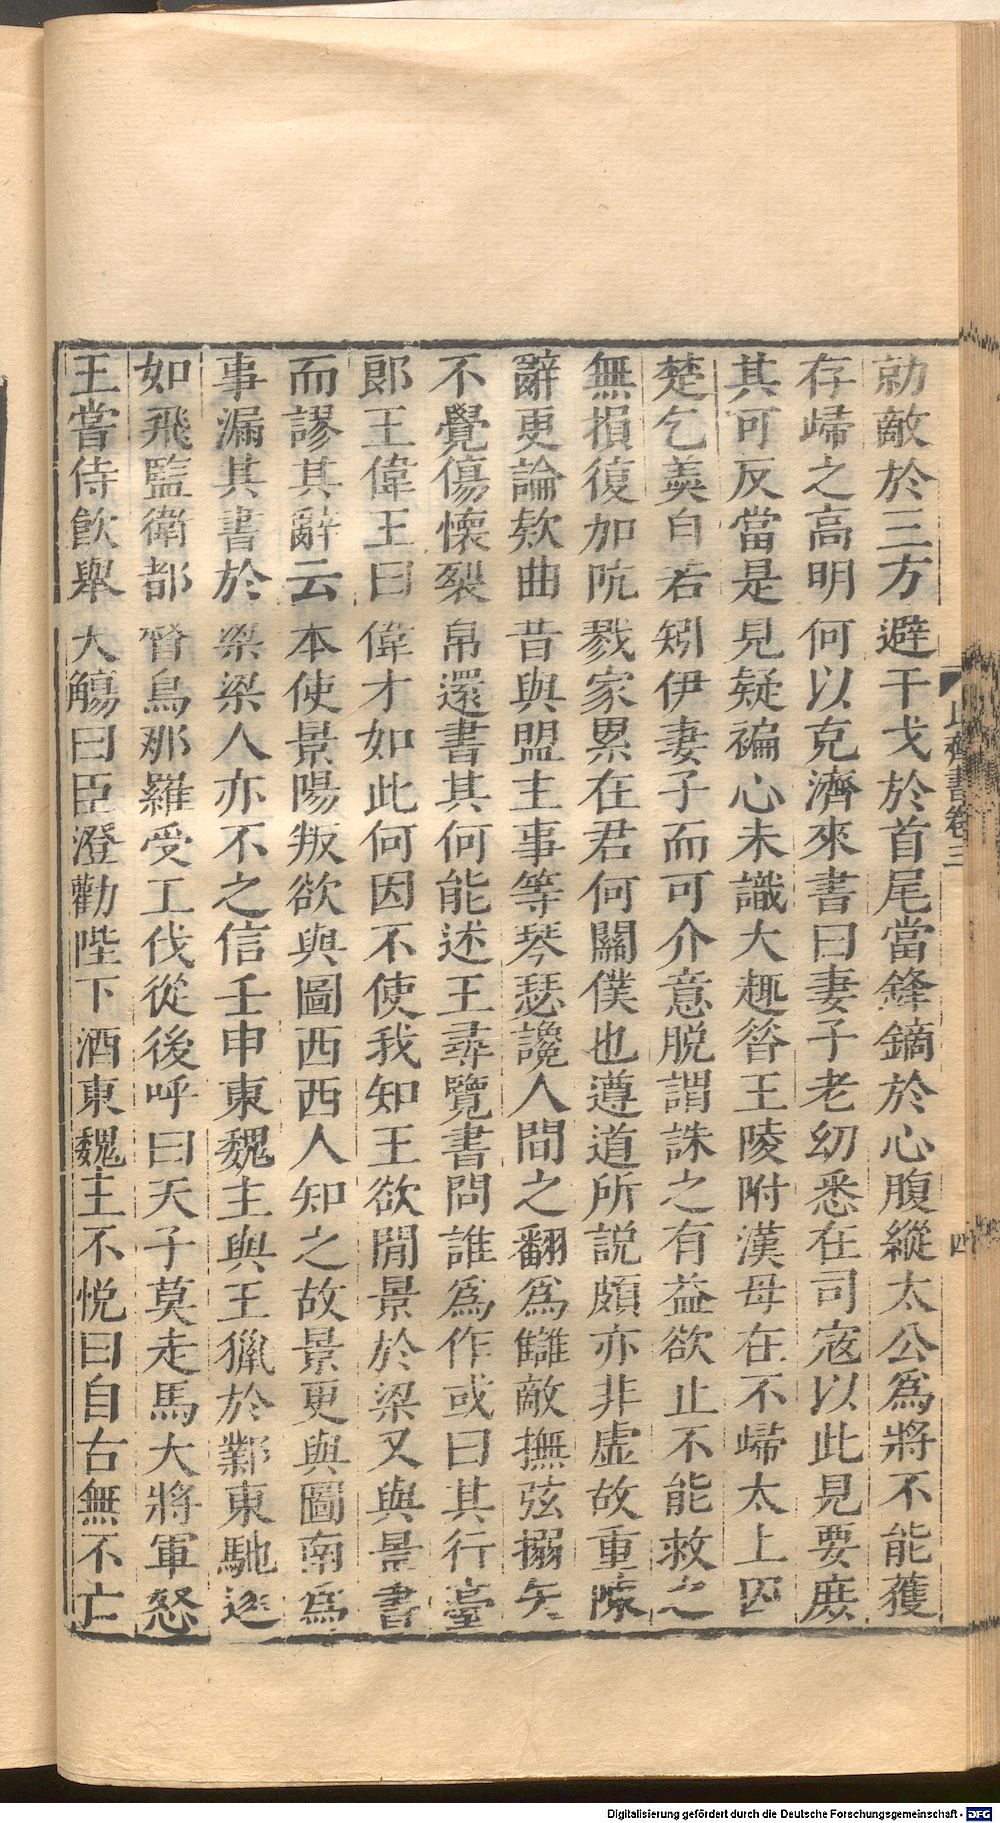 勍敵於三方避干戈於首尾當鋒鏑於心腹縱太公爲將不能獲
存歸之高明何以克濟來書曰妻子老幼悉在司寇以此見要庶
其可反當是見疑褊心未識大趣昝王陵附漢母在不歸太上囚
楚乞羮自若矧伊妻子而可介意脫謂誅之有益欲止不能救之
無損復加阬戮家累在君何關僕也遵道所說頗亦非虛故重陳
辭更論欵曲昔與盟主事等琴瑟讒人間之翻爲讎敵撫弦搦矢
不覺傷懷裂帛還書其何能述王尋覽書問誰爲作或曰其行臺
郎王偉王曰偉才如此何因不使我知王欲間景於梁又與景書
而謬其辭云本使景陽叛欲與圖西西人知之故景更與圖南爲
事漏其書於梁梁人亦不之信壬申東魏主與王獵於鄴東馳逐
如飛監衛都督烏那羅受工伐從後呼曰天子莫走馬大將軍怒
王嘗侍飲舉大觴曰臣澄勸陛下酒東魏主不悅曰自古無不亡
北齊書卷三
四
Digitalisierung gefördert durch die Deutsche Forschungsgemeinschaft - DFG